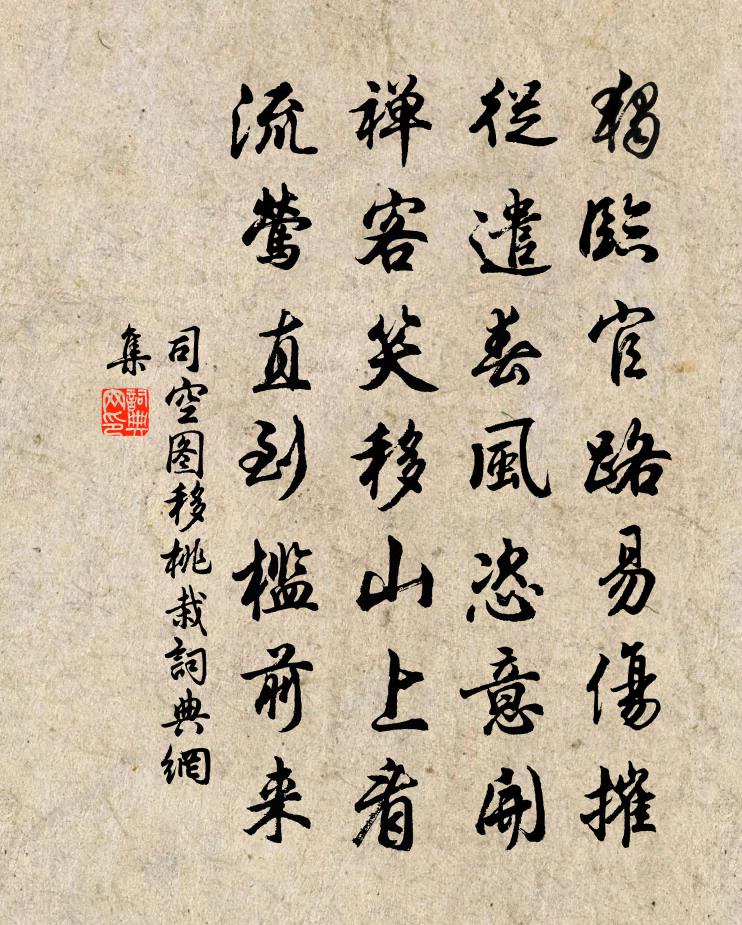 獨臨官路易傷摧
從遣春風恣意開
禅客笑移山上看
流鶯直到檻前来
司空图移桃栽詞典網
集
詞典網印